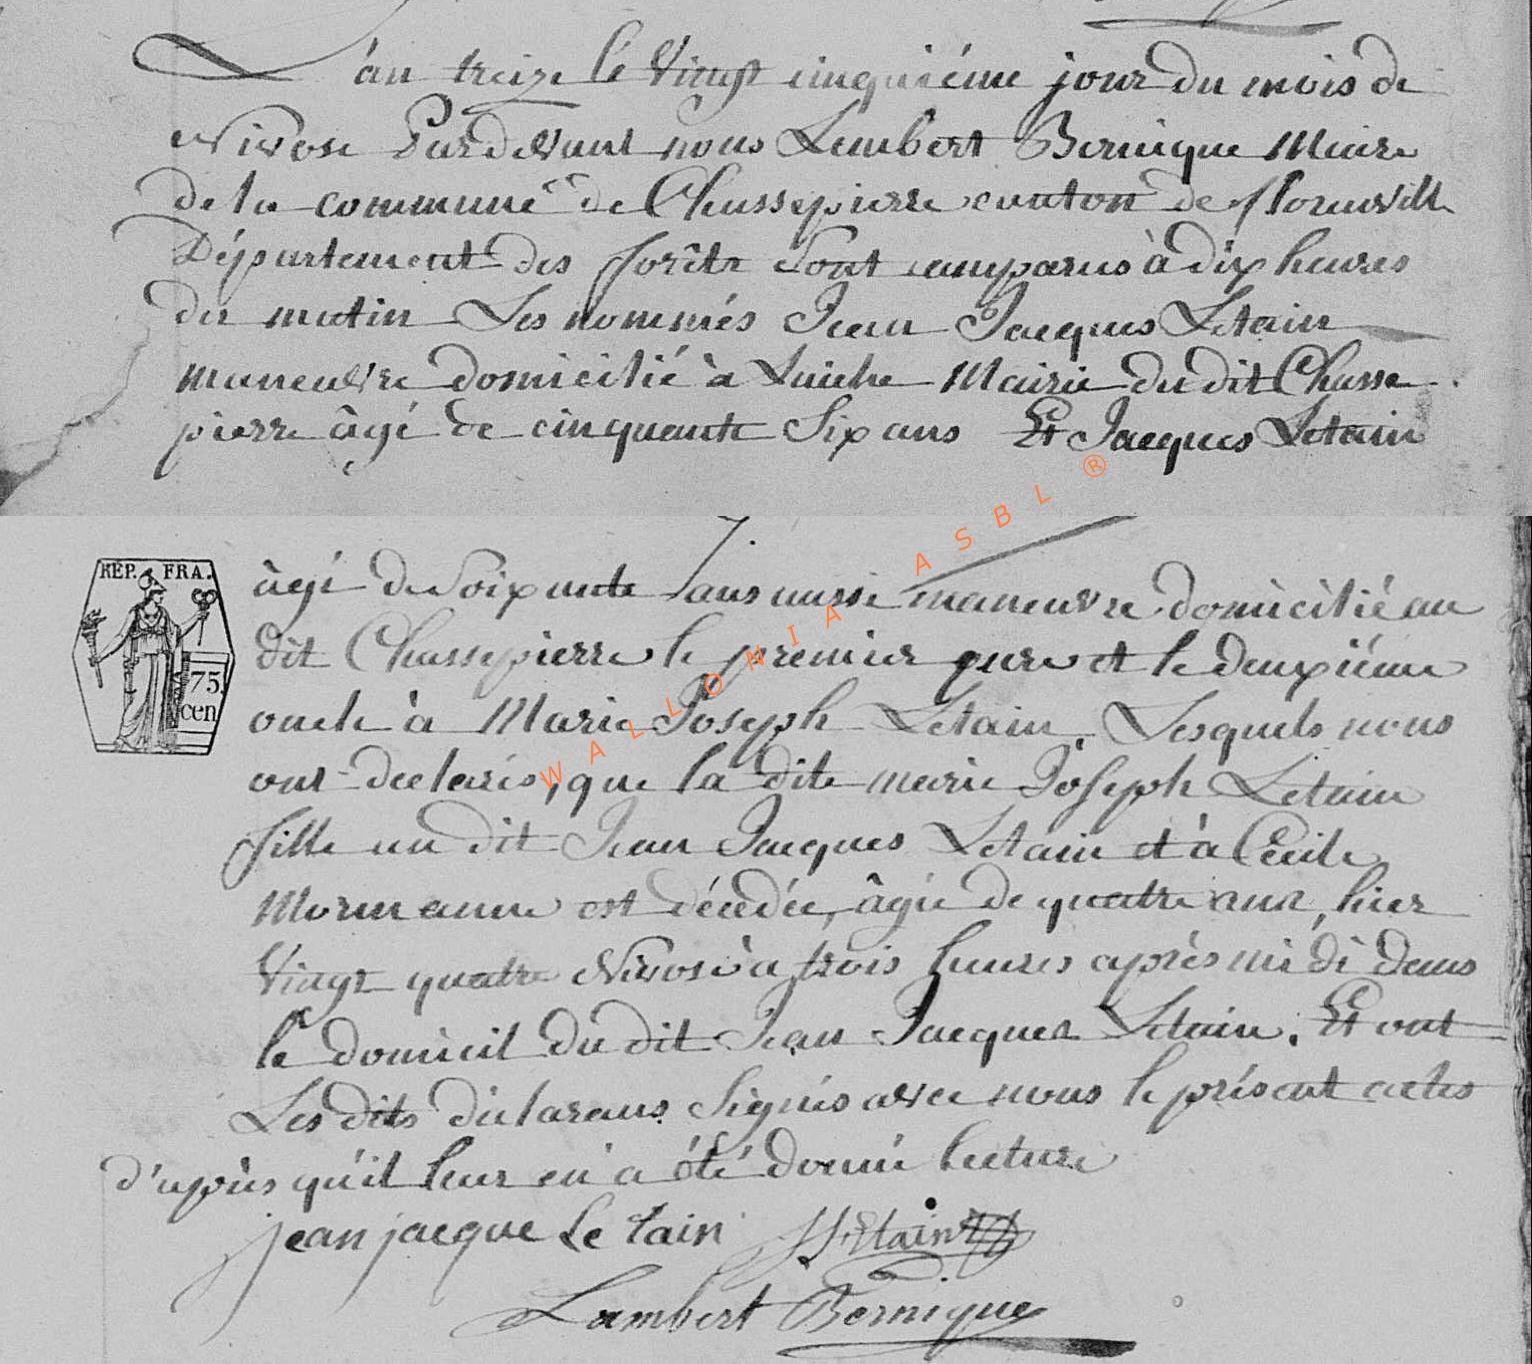 L'an treize le Vingt cinquiéme jour du mois de
Nivose Pardevant nous Lambert Bernique Maire
de la commune de Chassepierre canton de florenville
Département des forêts sont comparus à dix heures
du matin Les nommés Jean Jacques Letain
maneuvre domicilié à Laiche Mairie du dit Chasse
pierre âgé de cinquante Six ans Et Jacques Letain
7.
RÉP. FRA.
75.
cen
âgé de Soixante ans aussi maneuvre domicilié au
dit Chassepierre le premier pere et le deuxiéme
oncle à Marie Joseph Letain. Lesquels nous
ont declarés, que la dite marie Joseph Letain
fille au dit Jean Jacques Letain et à Cécile
Mormanne est décedée, âgée de quatre ans, hier
Vingt quatre Nivose à trois heures après midi dans
le domicil du dit Jean Jacques Letain. Et ont
Les dits declarans Signés avec nous le présent actes
d'après qu'il leur en a été donné lecture
jean jacque Le tain JJLetain
Lambert Bernique
WALLONIA ASBL ®